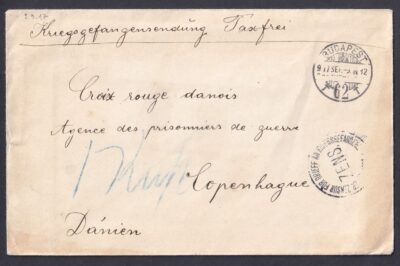 Kriegsgefangensendung Taxfrei
BUDAPEST
62
Croix rouge danois
Agence des prisonniers de guerra
Copenhague
Dánien